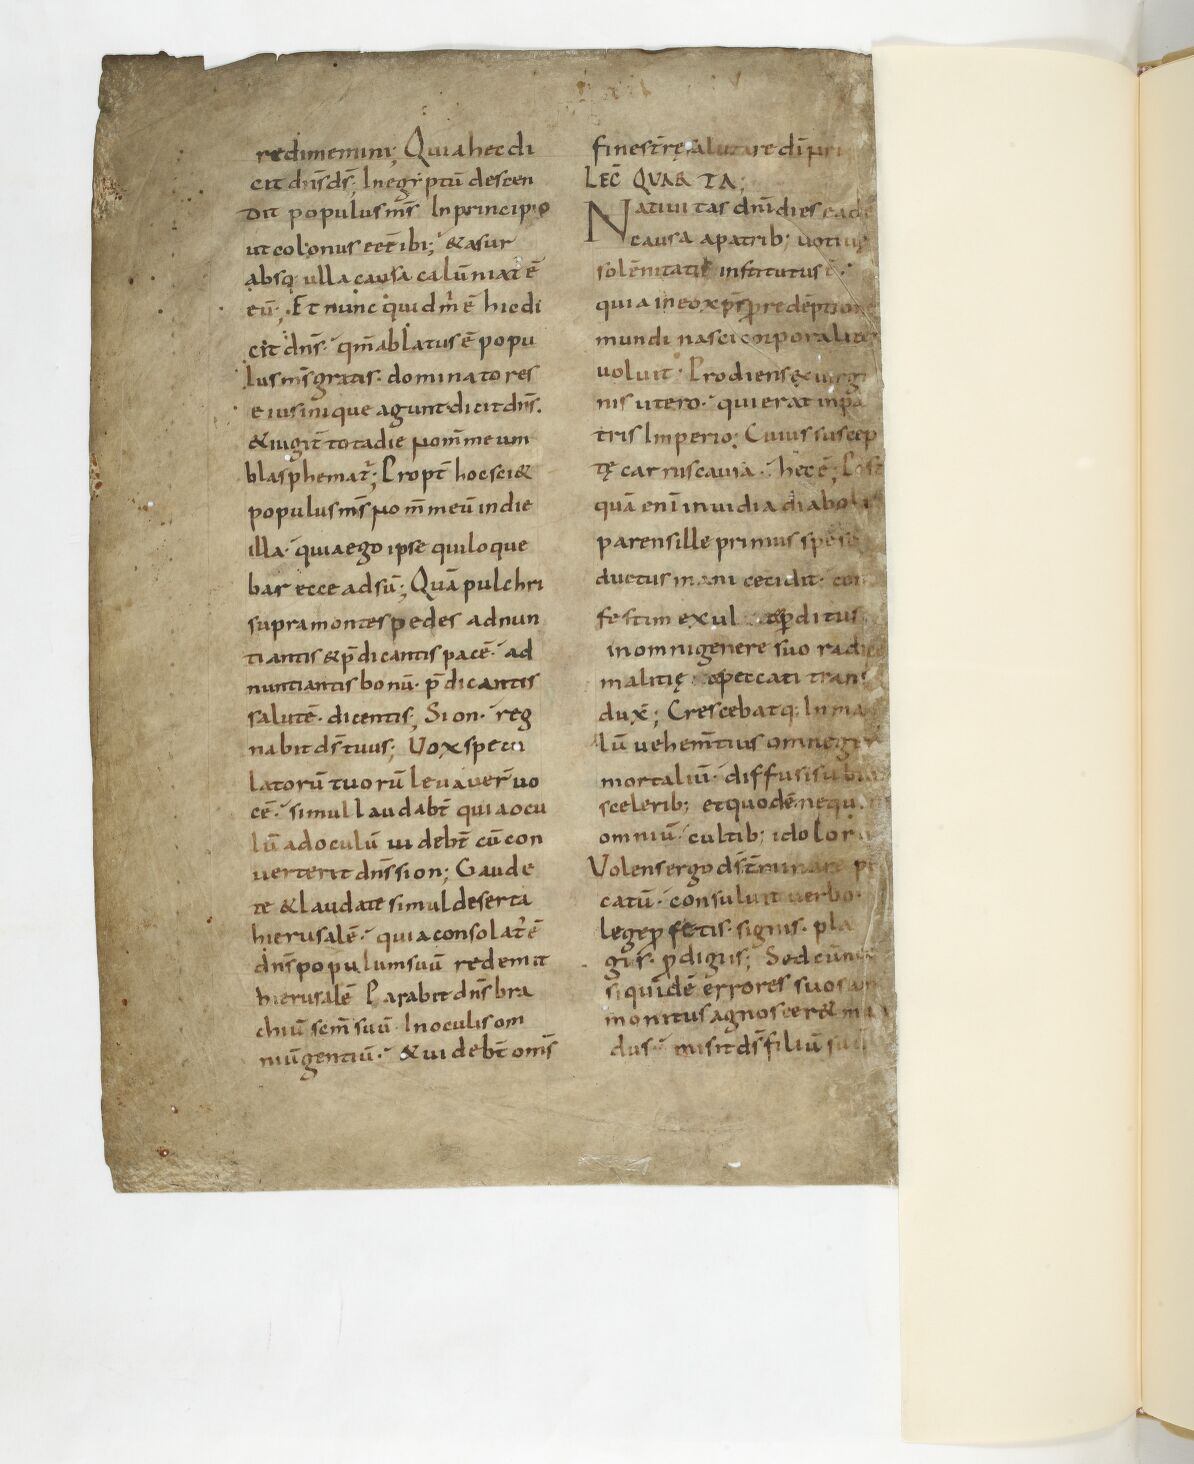 redimemini; Quia hec di
cit dn̄s ds̄; In egyptū descen
dit populus ms̄ In principio
ut colonus eēt ibi; & asur
absq; ulla causa calūniat' ē
eū; Et nunc quid m̄ ē hic di
cit dn̄s. qm̄ ablatus ē popu
lus ms̄ gratis. dominatores
eius inique agunt dicit dn̄s.
& iugit̄ tota die nom̄ meum
blasphemat'; Propt̄ hoc sci&
populus ms̄ nom̄ meū in die
illa. quia ego ipse qui loque
bar ecce adsū; Quā pulchri
supra montes pedes adnun
tiantis & p̄dicantis pacē. ad
nuntiantis bonū. p̄dicantis
salutē. dicentis; Sion. reg
nabit ds̄ tuus; Vox specu
latorū tuorū levaver̄ vo
cē. simul laudabt̄ quia ocu
lū ad oculū videbt̄ cū con
verterit dn̄s sion; Gaude
te & laudate simul deserta
hierusalē. quia consolat' ē
dn̄s populum suū redemit
hierusalē Parabit dn̄s bra
chiū scm̄ suū In oculis om
niū gentiū. & videbt̄ oms̄
fines tr̄ę salutare dī n̄ri
LEC̄ QUARTA;
Nativitas dn̄i dies eadē
causa a patrib; votivę
solēnitatis institutus ē.
quia in eo xp̄s p̄ redēptione
mundi nasci corporaliter
voluit. Prodiens ex virgi
nis utero. qui erat in pa
tris Imperio; Cuius suscep
tę carnis causa. hec ē; Post
quā enī invidia diaboli
parens ille primus spe se
ductus inani cecidit. con
festim exul & p̄ditus
in omni genere suo radicē
malitię & peccati trans
dux̄; Crescebatq; In ma
lū vehem̄tius omne gen'
mortaliū. diffusis ubiq;
scelerib; et quod ē nequi
omniū. cultib; idolorū
Volens ergo ds̄ t̄minare pec
catū. consuluit verbo.
lege p̄fetis. signis. pla
gis. p̄digiis; Sed cū nec
si quidē errores suos am
monitus agnoscer& mun
dus. misit ds̄ filiū suū